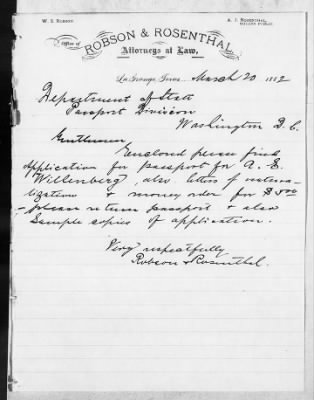 W. S. ROBSON
A. J. ROSENTHAL,
NOTARY PUBLIC.
Office of
ROBSON & ROSENTHAL,
Attorneys at Law,
La Grange, Texas, March 20 1882
Department of State
Passport Division
Washington D. C.
Gentlemen
Enclosed please find
application for passport for A. E.
Willenberg, also letters of natura-
lization & money order for $5.00
- please return passport & also
sample copies of application.
Very respectfully
Robson & Rosenthal.